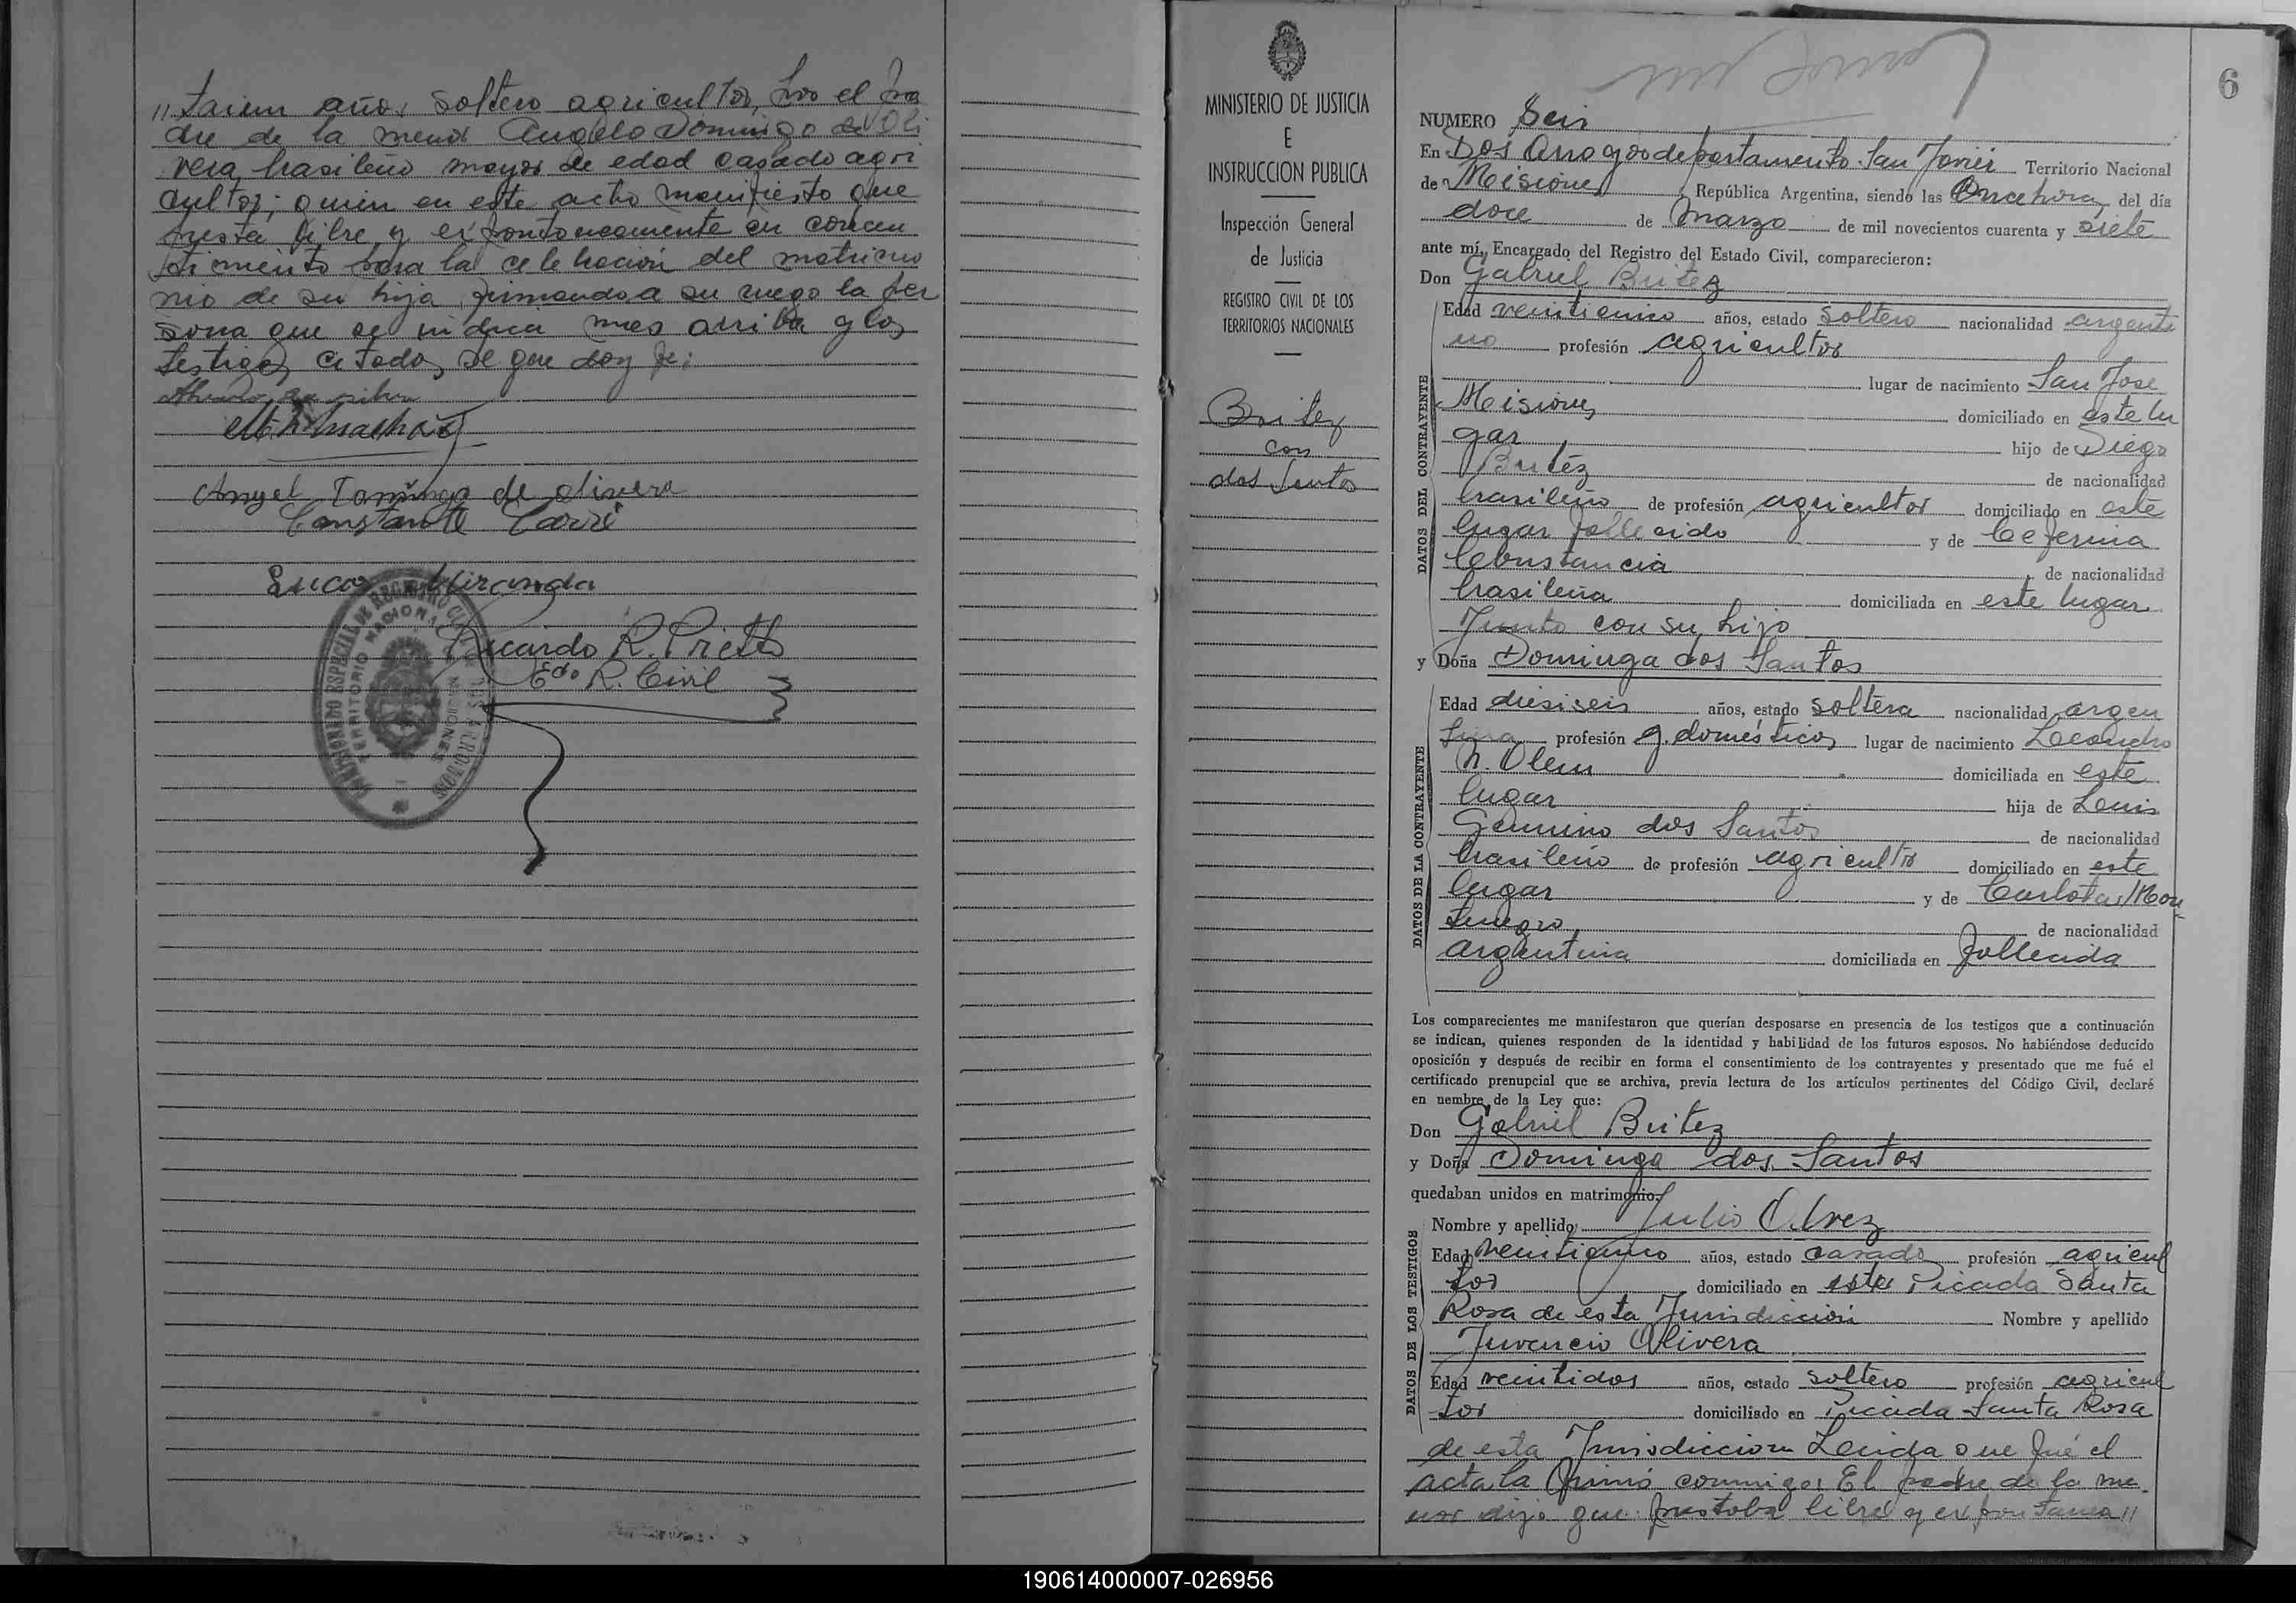 // taiun años soltero agricultor, Por el Pa
dre de la menor Angelo Domingo de Oli
vera, brasileño mayor de edad casado agri
cultor; quien en este acto manifiesto que
presta libre y expontaneamente su concen
timiento para la celebracion del matrimo
nio de su hija firmando a su ruego la per
sona que se indica mas arriba y los
testigos citados de que doy fe:
Angel Domingo de olivera
Constante
Lucas Miranda
Ricardo R. Prieto
Edo R. Civil
TERRITORIO NACIONAL
MISIONES
MINISTERIO DE JUSTICIA
E
INSTRUCCION PUBLICA
Inspección General
de Justicia
REGISTRO CIVIL DE LOS
TERRITORIOS NACIONALES
Britez
con
dos Santos
6
NUMERO Seis
En Dos Arroyos departamento San Javier Territorio Nacional
de Misiones, República Argentina, siendo las Once horas, del día
doce de Marzo de mil novecientos cuarenta y siete
ante mí, Encargado del Registro del Estado Civil, comparecieron:
Don Gabriel Britez
DATOS DEL CONTRAYENTE
Edad veinticinco años, estado Soltero nacionalidad argenti
no profesión agricultor
lugar de nacimiento San Jose
Misiones domiciliado en este lu
gar hijo de Diego
Britéz de nacionalidad
brasileño de profesión agricultor domiciliado en este
lugar fallecido y de Ceferina
Constancia de nacionalidad
brasileña domiciliada en este lugar
Junto con su hijo
y Doña Dominga dos Santos
DATOS DE LA CONTRAYENTE
Edad diesiseis años, estado Soltera nacionalidad argen
tina profesión q. domésticos lugar de nacimiento Leandro
N. Alem domiciliada en este
lugar hija de Louis
Genuino dos Santos de nacionalidad
brasileño de profesión agricultor domiciliado en este
lugar y de Carlota Mon
tenegro de nacionalidad
argentina domiciliada en fallecida
Los comparecientes me manifestaron que querían desposarse en presencia de los testigos que a continuación
se indican, quienes responden de la identidad y habilidad de los futuros esposos. No habiéndose deducido
oposición y después de recibir en forma el consentimiento de los contrayentes y presentado que me fué el
certificado prenupcial que se archiva, previa lectura de los artículos pertinentes del Código Civil, declaré
en nembre de la Ley que:
Don Gabriel Britez
y Doña Dominga dos Santos
quedaban unidos en matrimonio.
DATOS DE LOS TESTIGOS
Nombre y apellido Julio Alvez
Edad veinticinco años, estado casado profesión agricul
tor domiciliado en esta Picada Santa
Rosa de esta Jurisdicción Nombre y apellido
Juvencio Olivera
Edad veintidos años, estado soltero profesión agricul
tor domiciliado en Picada Santa Rosa
de esta Jurisdiccion Leida que fué el
acta la firmó conmigo: El padre de la me
nor dijo que prestaba libre y expontanea //
190614000007-026956